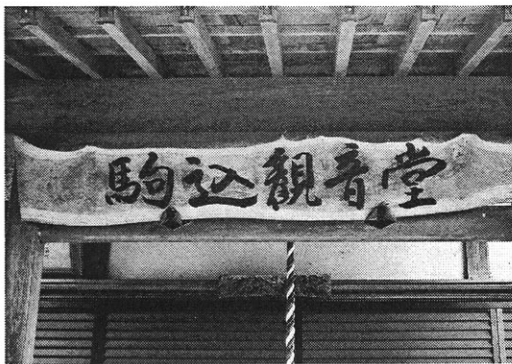 駒込観音堂